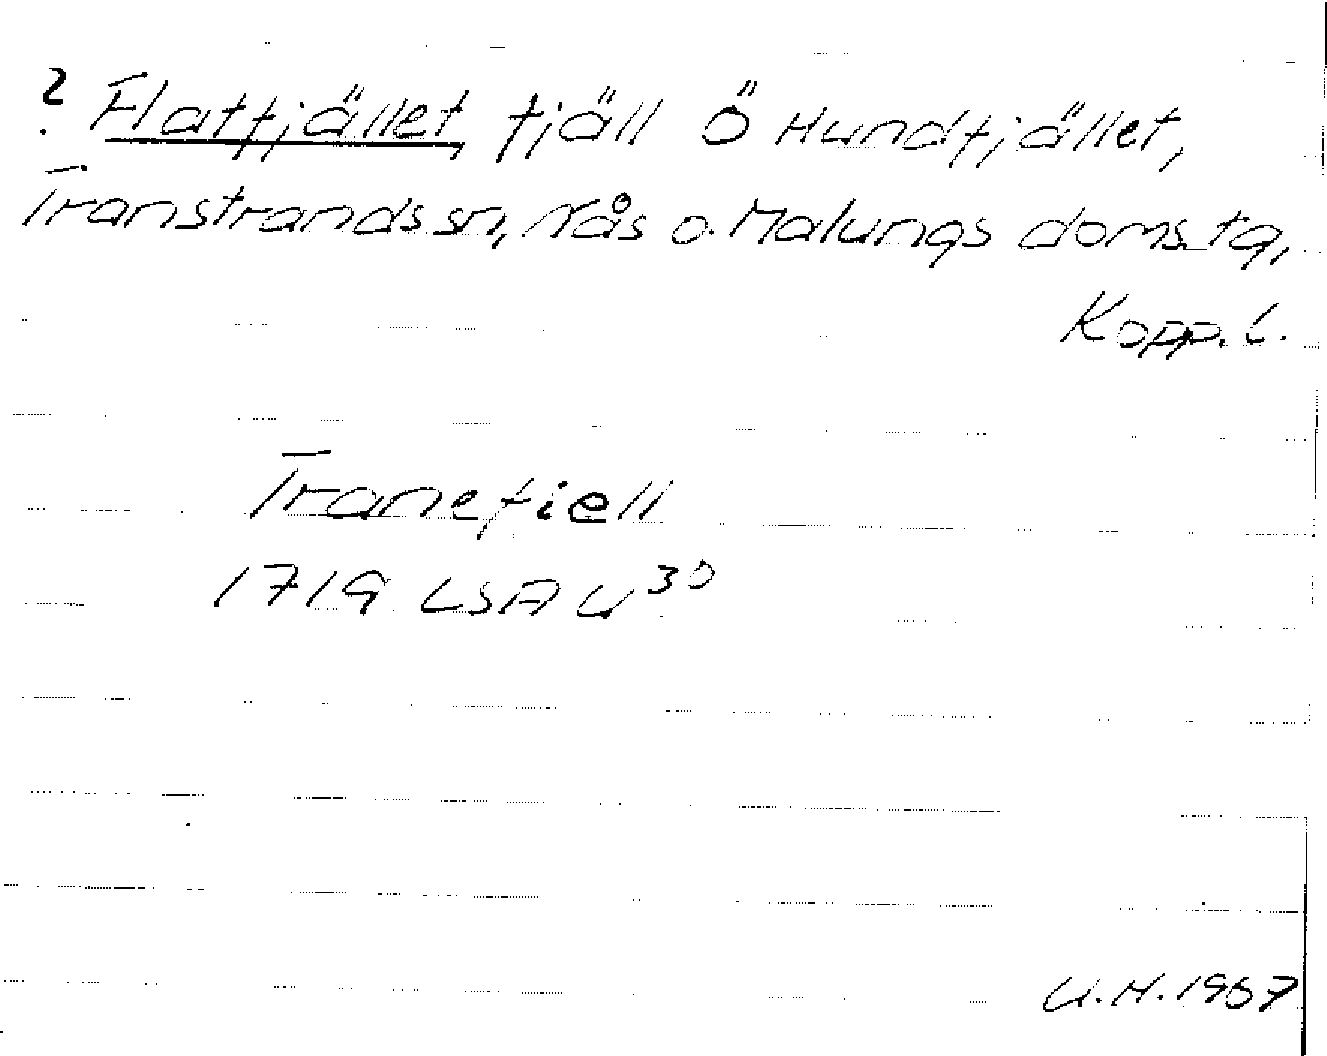 ? Flatfjället, fjäll Ö Hundfjället,
Transtrands sn, Nås o. Malungs doms.tg,
Kopp. l.
Tranefiell
1719 LSA U 30
U.H. 1967